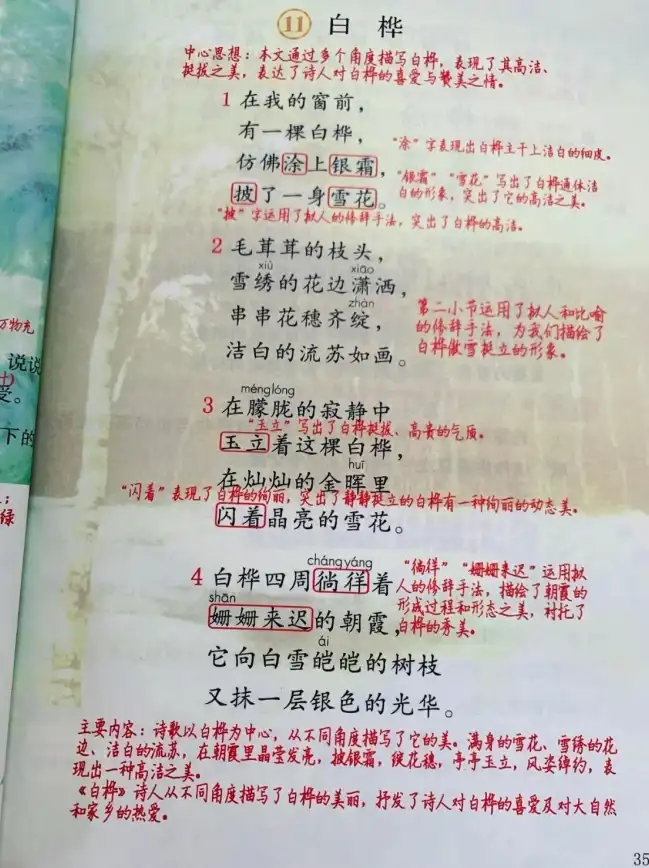 11 白桦
中心思想：本文通过多个角度描写白桦，表现了其高洁、
挺拔之美，表达了诗人对白桦的喜爱与赞美之情。
1 在我的窗前，
有一棵白桦，
“涂”字表现出白桦主干上洁白的细皮。
仿佛涂上银霜，
“银霜”“雪花”写出了白桦通体洁
白的形象，突出了它的高洁之美。
披了一身雪花。
“披”字运用了拟人的修辞手法，突出了白桦的高洁。
2 毛茸茸的枝头，
xiù xiāo
雪绣的花边潇洒，
zhàn
串串花穗齐绽，
洁白的流苏如画。
第二小节运用了拟人和比喻
的修辞手法，为我们描绘了
白桦傲雪挺立的形象。
méng lóng
3 在朦胧的寂静中
“玉立”写出了白桦挺拔、高贵的气质。
玉立着这棵白桦，
huī
在灿灿的金晖里
“闪着”表现了白桦的绚丽，突出了静静挺立的白桦有一种绚丽的动态美。
闪着晶亮的雪花。
cháng yáng
4 白桦四周徜徉着
shān
姗姗来迟的朝霞，
“徜徉”“姗姗来迟”运用拟
人的修辞手法，描绘了朝霞的
形成过程和形态之美，衬托了
白桦的秀美。
ái
它向白雪皑皑的树枝
又抹一层银色的光华。
主要内容：诗歌以白桦为中心，从不同角度描写了它的美。满身的雪花、雪绣的花
边、洁白的流苏，在朝霞里晶莹发亮，披银霜，绽花穗，亭亭玉立，风姿绰约，表
现出一种高洁之美。
《白桦》诗人从不同角度描写了白桦的美丽，抒发了诗人对白桦的喜爱及对大自然
和家乡的热爱。
35
万物充
说说
受。
下的
；
绿